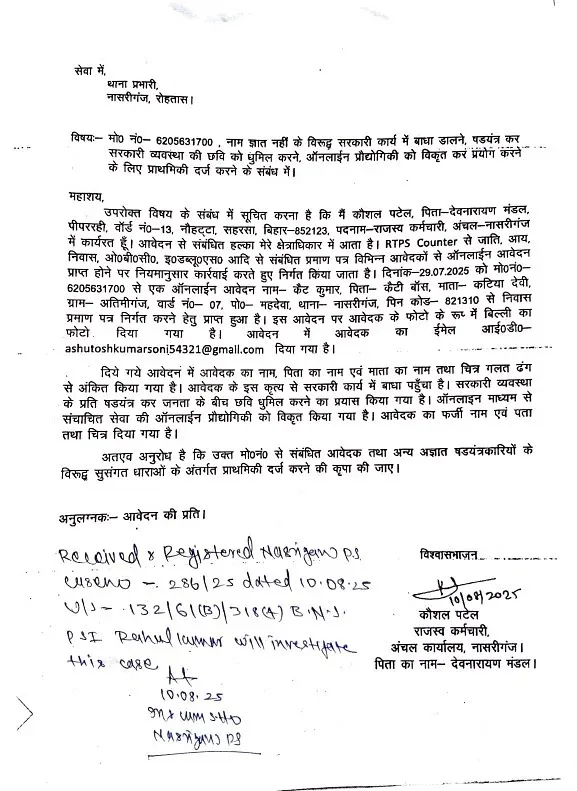 सेवा में,
थाना प्रभारी,
नासरीगंज, रोहतास।
विषयः– मो0 नं0– 6205631700 , नाम ज्ञात नहीं के विरूद्ध सरकारी कार्य में बाधा डालने, षडयंत्र कर
सरकारी व्यवस्था की छवि को धुमिल करने, ऑनलाईन प्रौद्योगिकी को विकृत कर प्रयोग करने
के लिए प्राथमिकी दर्ज करने के संबंध में।
महाशय,
उपरोक्त विषय के संबंध में सूचित करना है कि मैं कौशल पटेल, पिता–देवनारायण मंडल,
पीपररही, वॉर्ड नं0–13, नौहट्टा, सहरसा, बिहार–852123, पदनाम–राजस्व कर्मचारी, अंचल–नासरीगंज
में कार्यरत हूँ। आवेदन से संबंधित हल्का मेरे क्षेत्राधिकार में आता है। RTPS Counter से जाति, आय,
निवास, ओ0बी0सी0, इ0डब्लू0एस0 आदि से संबंधित प्रमाण पत्र विभिन्न आवेदकों से ऑनलाईन आवेदन
प्राप्त होने पर नियमानुसार कार्रवाई करते हुए निर्गत किया जाता है। दिनांक–29.07.2025 को मो0नं0–
6205631700 से एक ऑनलाईन आवेदन नाम– कैट कुमार, पिता– कैटी बॉस, माता– कटिया देवी,
ग्राम– अतिमीगंज, वार्ड नं0– 07, पो0– महदेवा, थाना– नासरीगंज, पिन कोड– 821310 से निवास
प्रमाण पत्र निर्गत करने हेतु प्राप्त हुआ है। इस आवेदन पर आवेदक के फोटो के रूप में बिल्ली का
फोटो दिया गया है। आवेदन में आवेदक का ईमेल आई0डी0–
ashutoshkumarsoni54321@gmail.com दिया गया है।
दिये गये आवेदन में आवेदक का नाम, पिता का नाम एवं माता का नाम तथा चित्र गलत ढंग
से अंकित किया गया है। आवेदक के इस कृत्य से सरकारी कार्य में बाधा पहुँचा है। सरकारी व्यवस्था
के प्रति षडयंत्र कर जनता के बीच छवि धुमिल करने का प्रयास किया गया है। ऑनलाइन माध्यम से
संचाचित सेवा की ऑनलाईन प्रौद्योगिकी को विकृत किया गया है। आवेदक का फर्जी नाम एवं पता
तथा चित्र दिया गया है।
अतएव अनुरोध है कि उक्त मो0नं0 से संबंधित आवेदक तथा अन्य अज्ञात षडयंत्रकारियों के
विरूद्ध सुसंगत धाराओं के अंतर्गत प्राथमिकी दर्ज करने की कृपा की जाए।
अनुलग्नकः– आवेदन की प्रति।
Received & Registered Nasriganj PS
case no – 286/25 dated 10.08.25
U/S – 132/61(B)/318(4) B.N.S.
PSI Rahul kumar will investigate
this case
10.08.25
SHO
Nasriganj PS
विश्वासभाजन
10/08/2025
कौशल पटेल
राजस्व कर्मचारी,
अंचल कार्यालय, नासरीगंज।
पिता का नाम– देवनारायण मंडल।